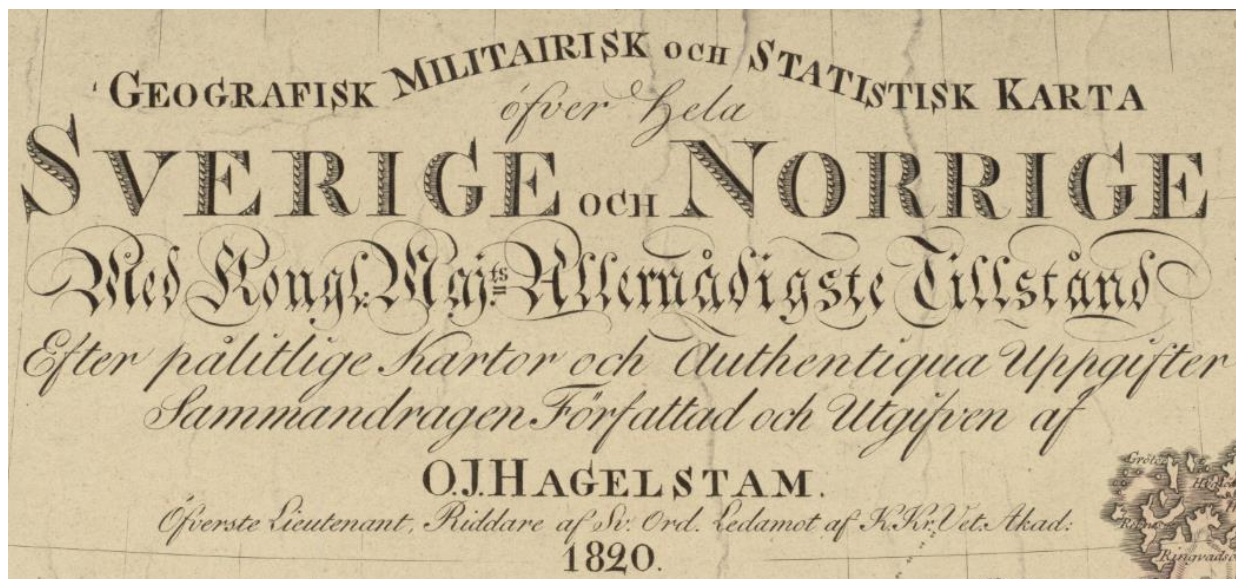 GEOGRAFISK MILITAIRISK OCH STATISTISK KARTA
öfver Hela
SVERIGE OCH NORRIGE
Med Kongl. Maj:ts Allernådigste Tillstånd
Efter pålitlige Kartor och Authentiqua Uppgifter
Sammandragen Författad och Utgifven af
O.J.HAGELSTAM.
Öfverste Lieutenant, Riddare af Sv. Ord. Ledamot af K.Kr.Vet.Akad:
1820.
Ringvadsö